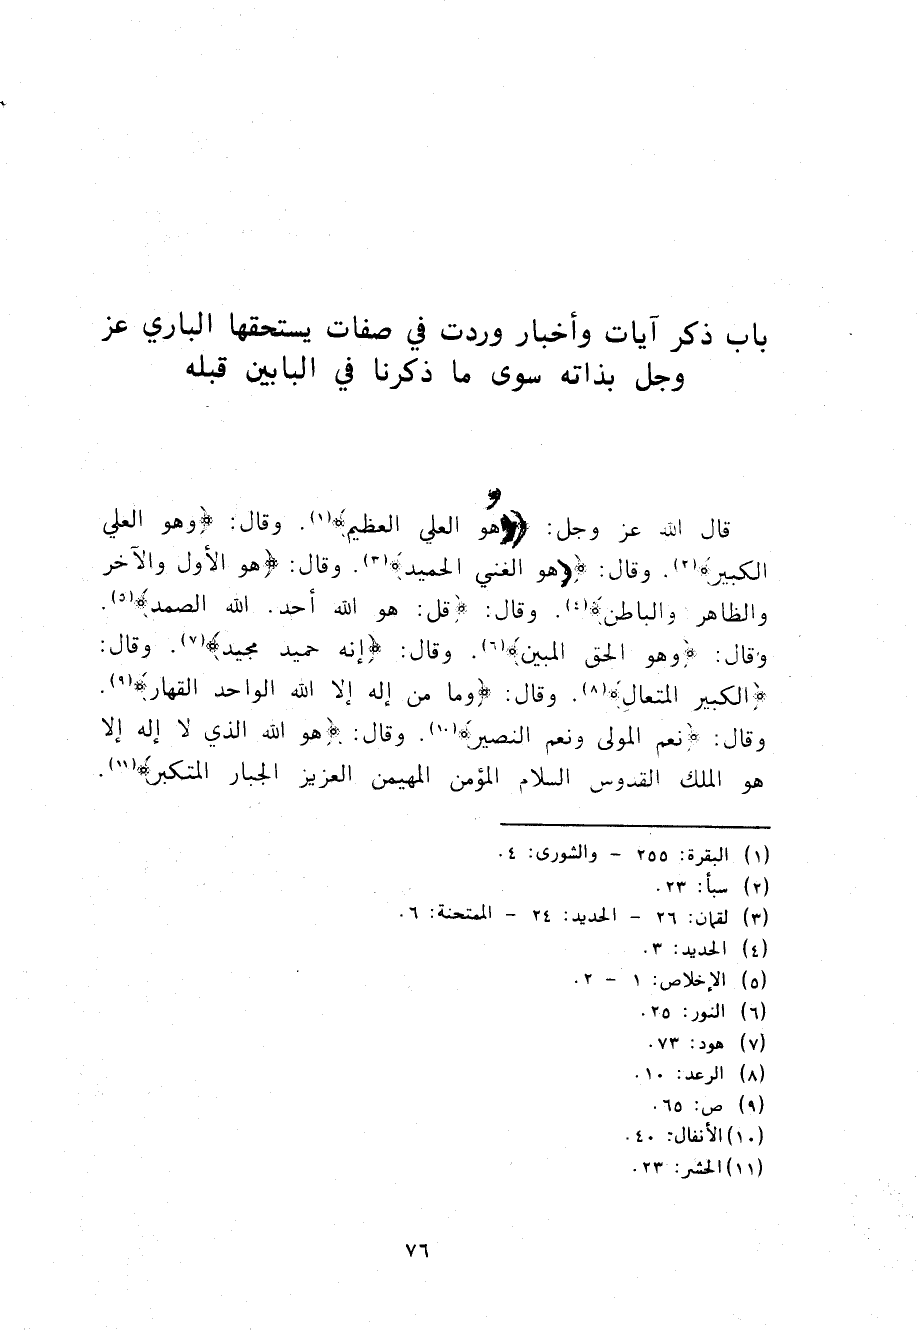 باب ذكر آيات وأخبار وردت في صفات يستحقها الباري عز
وجل بذاته سوى ما ذكرنا في البابين قبله
قال الله عز وجل: ﴿وهو العلي العظيم﴾(١). وقال: ﴿وهو العلي
الكبير﴾(٢). وقال: ﴿هو الغني الحميد﴾(٣). وقال: ﴿هو الأول والآخر
والظاهر والباطن﴾(٤). وقال: ﴿قل: هو الله أحد. الله الصمد﴾(٥).
وقال: ﴿وهو الحق المبين﴾(٦). وقال: ﴿إنه حميد مجيد﴾(٧). وقال:
﴿الكبير المتعال﴾(٨). وقال: ﴿وما من إله إلا الله الواحد القهار﴾(٩).
وقال: ﴿نعم المولى ونعم النصير﴾(١٠). وقال: ﴿هو الله الذي لا إله إلا
هو الملك القدوس السلام المؤمن المهيمن العزيز الجبار المتكبر﴾(١١).
(١) البقرة: ٢٥٥ - والشورى: ٤.
(٢) سبأ: ٢٣.
(٣) لقمان: ٢٦ - الحديد: ٢٤ - الممتحنة: ٦.
(٤) الحديد: ٣.
(٥) الإخلاص: ١ - ٢.
(٦) النور: ٢٥.
(٧) هود: ٧٣.
(٨) الرعد: ١٠.
(٩) ص: ٦٥.
(١٠) الأنفال: ٤٠.
(١١) الحشر: ٢٣.
٧٦